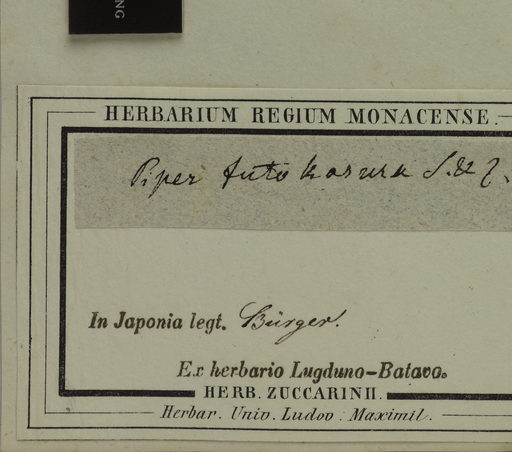 NG
HERBARIUM REGIUM MONACENSE.
Piper futokasura S. & Z.
In Japonia legt. Bürger.
Ex herbario Lugduno-Batavo.
HERB. ZUCCARINII.
Herbar. Univ. Ludov. Maximil.